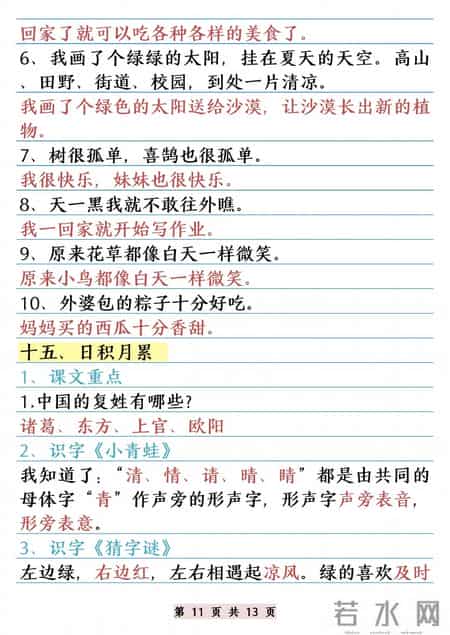 回家了就可以吃各种各样的美食了。
6、我画了个绿绿的太阳，挂在夏天的天空。高山
、田野、街道、校园，到处一片清凉。
我画了个绿色的太阳送给沙漠，让沙漠长出新的植
物。
7、树很孤单，喜鹊也很孤单。
我很快乐，妹妹也很快乐。
8、天一黑我就不敢往外瞧。
我一回家就开始写作业。
9、原来花草都像白天一样微笑。
原来小鸟都像白天一样微笑。
10、外婆包的粽子十分好吃。
妈妈买的西瓜十分香甜。
十五、日积月累
1、课文重点
1.中国的复姓有哪些?
诸葛、东方、上官、欧阳
2、识字《小青蛙》
我知道了：“清、情、请、晴、睛”都是由共同的
母体字“青”作声旁的形声字，形声字声旁表音，
形旁表意。
3、识字《猜字谜》
左边绿，右边红，左右相遇起凉风。绿的喜欢及时
第 11 页 共 13 页
若水网